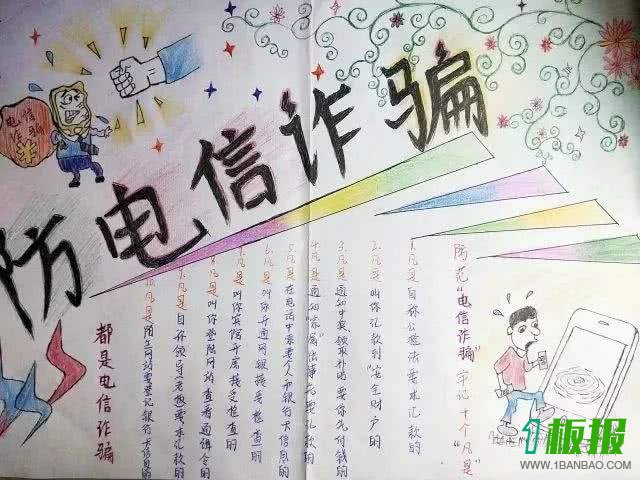 防电信诈骗
电信
诈骗
¥
防范"电信诈骗"牢记十个"凡是"
1.凡是自称公检法要求汇款的
2.凡是叫你汇款到"安全财户"的
3.凡是通知中奖、领取补贴要你先付钱的
4.凡是通知"家属"出事先要汇款的
5.凡是在电话中索要个人和银行卡信息的
6.凡是叫你开通网银接受检查的
7.凡是叫你宾馆开房接受检查的
8.凡是叫你登陆网站查看通缉令的
9.凡是自称领导老板要求汇款的
10.凡是陌生网站要登记银行卡信息的
都是电信诈骗
1板报
WWW.1BANBAO.COM